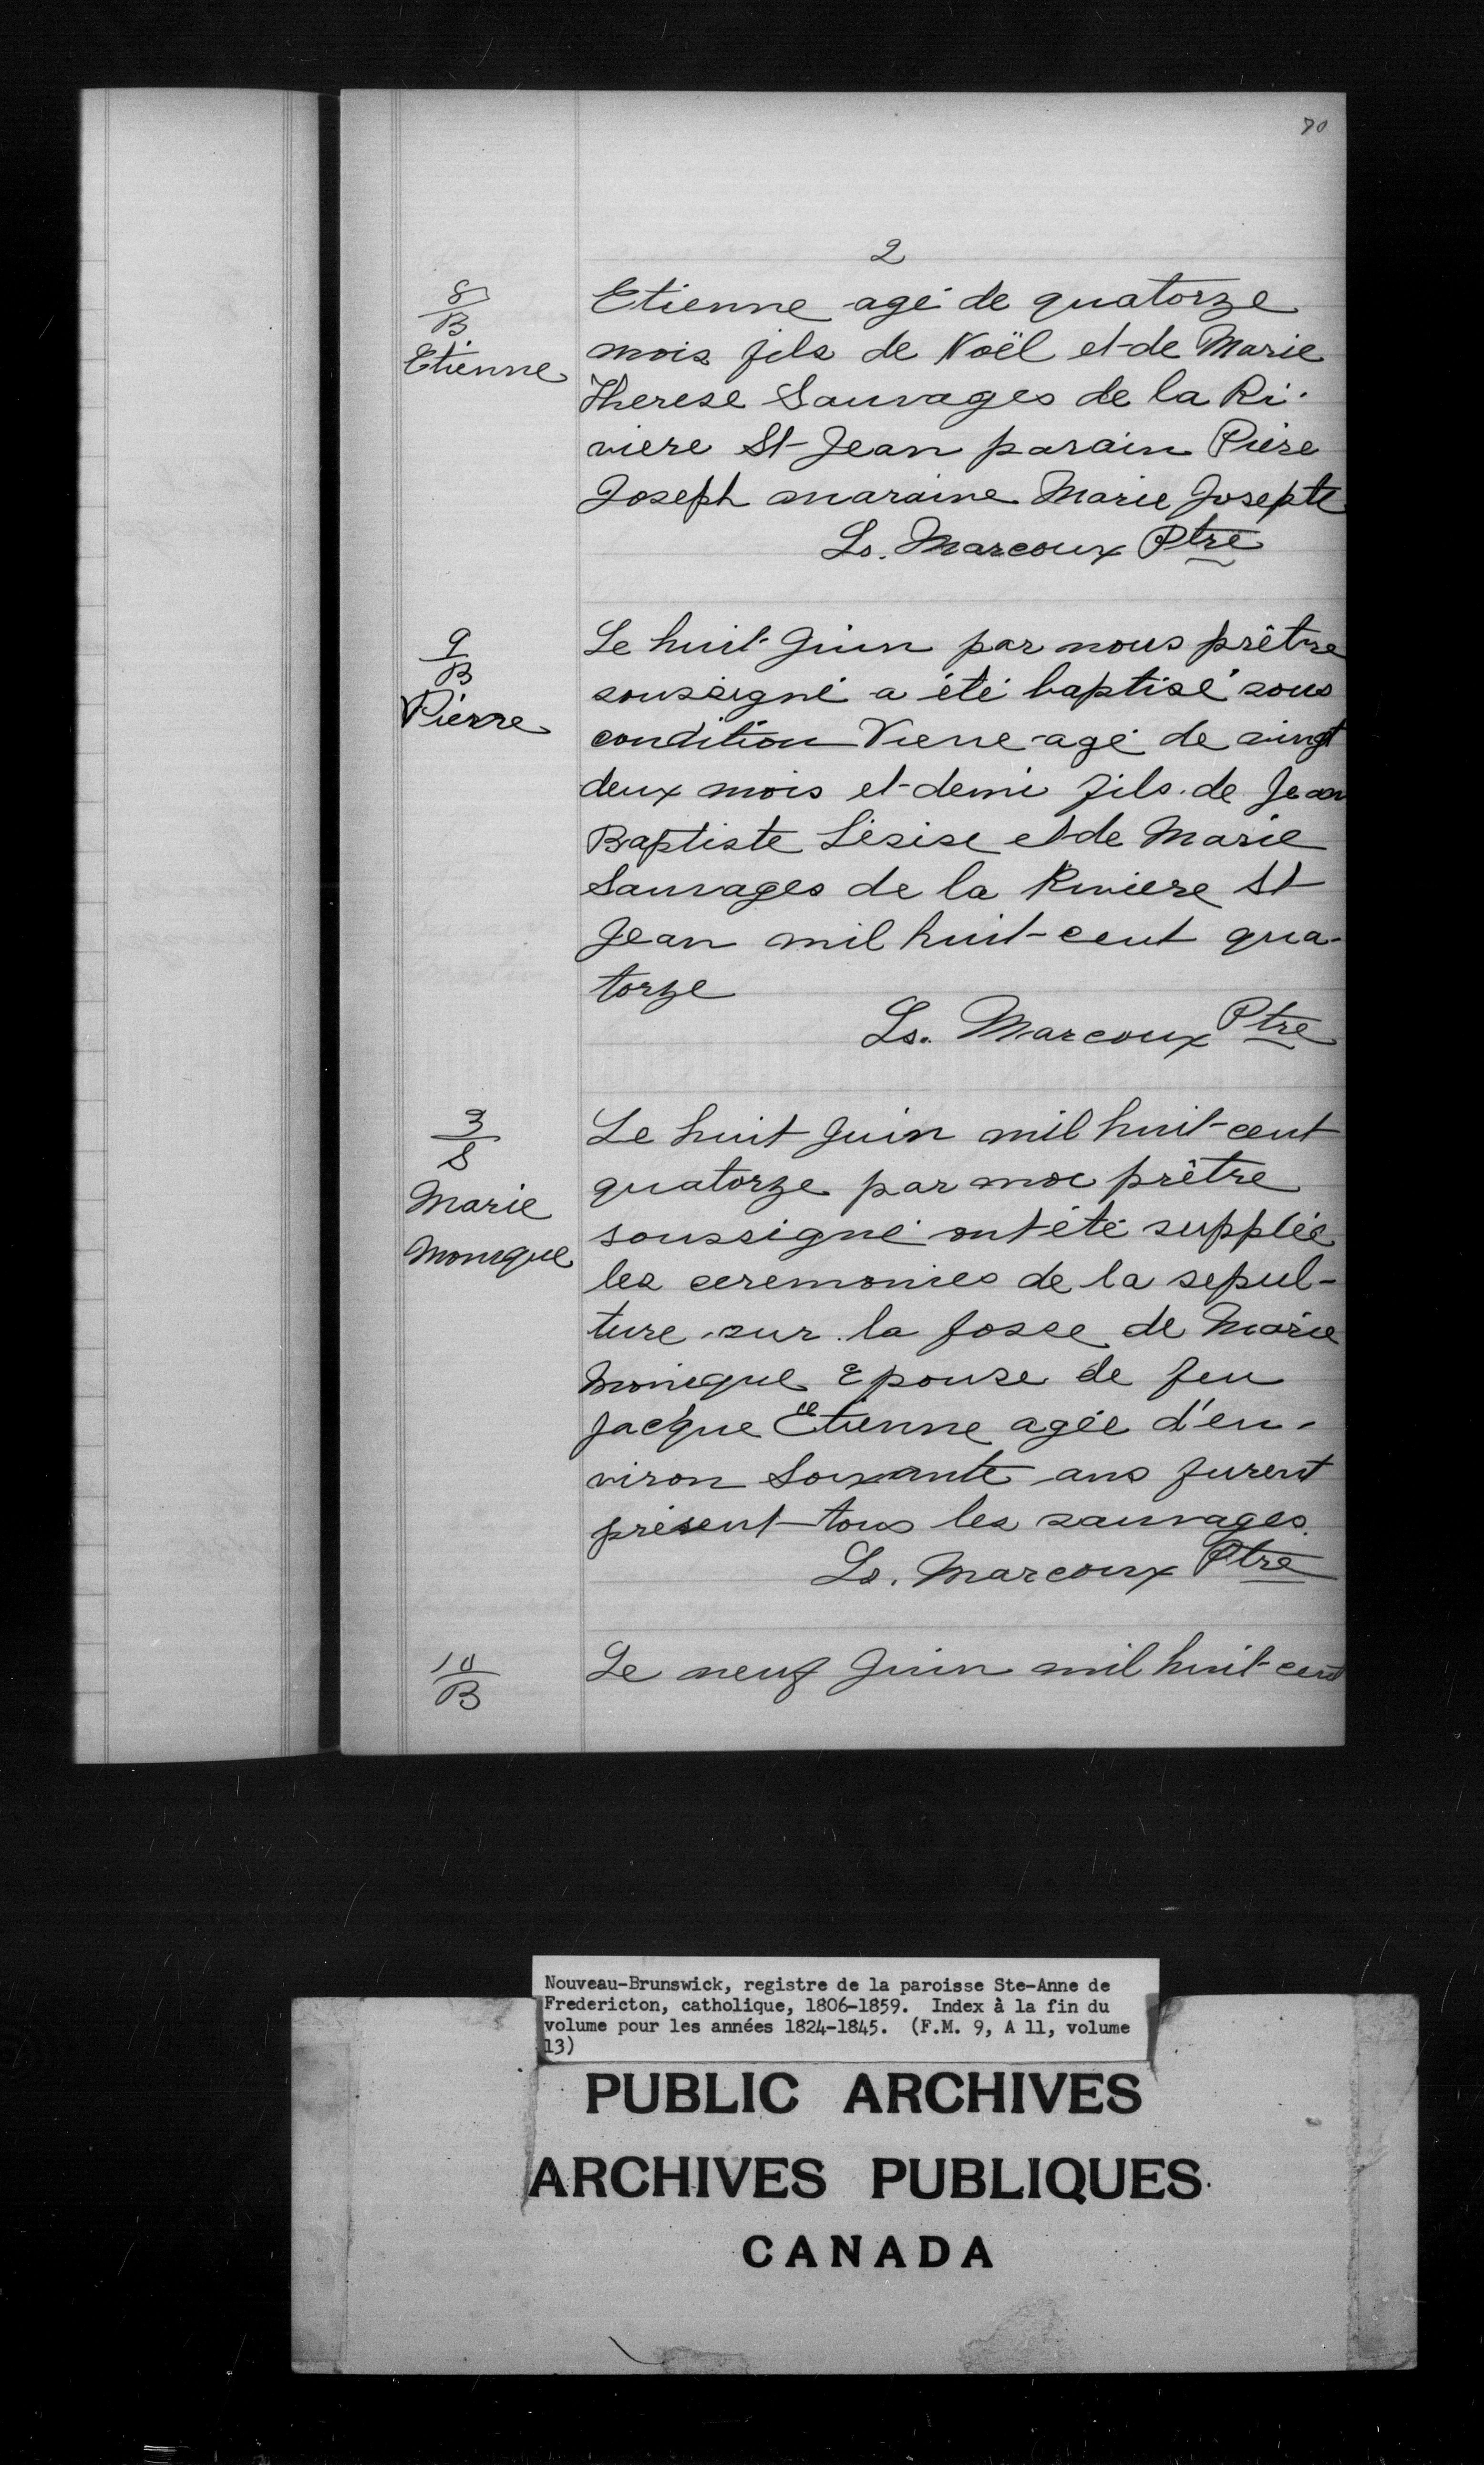 70
2
8
B
Etienne
Etienne agé de quatorze
mois fils de Noël et de Marie
Therese Sauvages de la Ri-
viere St Jean parain Piere
Joseph maraine Marie Josepte
Ls. Marcoux Ptre
9
B
Pierre
Le huit Juin par nous prêtre
soussigné a été baptisé sous
condition Pierre agé de vingt
deux mois et demi fils de Jean
Baptiste Lésise et de Marie
Sauvages de la Riviere St
Jean mil huit-cent qua-
torze
Ls. Marcoux Ptre
3
S
Marie
Monique
Le huit Juin mil huit-cent
quatorze par moi prêtre
soussigné ont été supplée
les ceremonies de la sepul-
ture sur la fosse de Marie
Monique Epouse de feu
Jacque Etienne agée d'en-
viron Soixante ans furent
présent tous les sauvages.
Ls. Marcoux Ptre
10
B
Le neuf Juin mil huit-cent
Nouveau-Brunswick, registre de la paroisse Ste-Anne de
Fredericton, catholique, 1806-1859. Index à la fin du
volume pour les années 1824-1845. (F.M. 9, A 11, volume
13)
PUBLIC ARCHIVES
ARCHIVES PUBLIQUES
CANADA